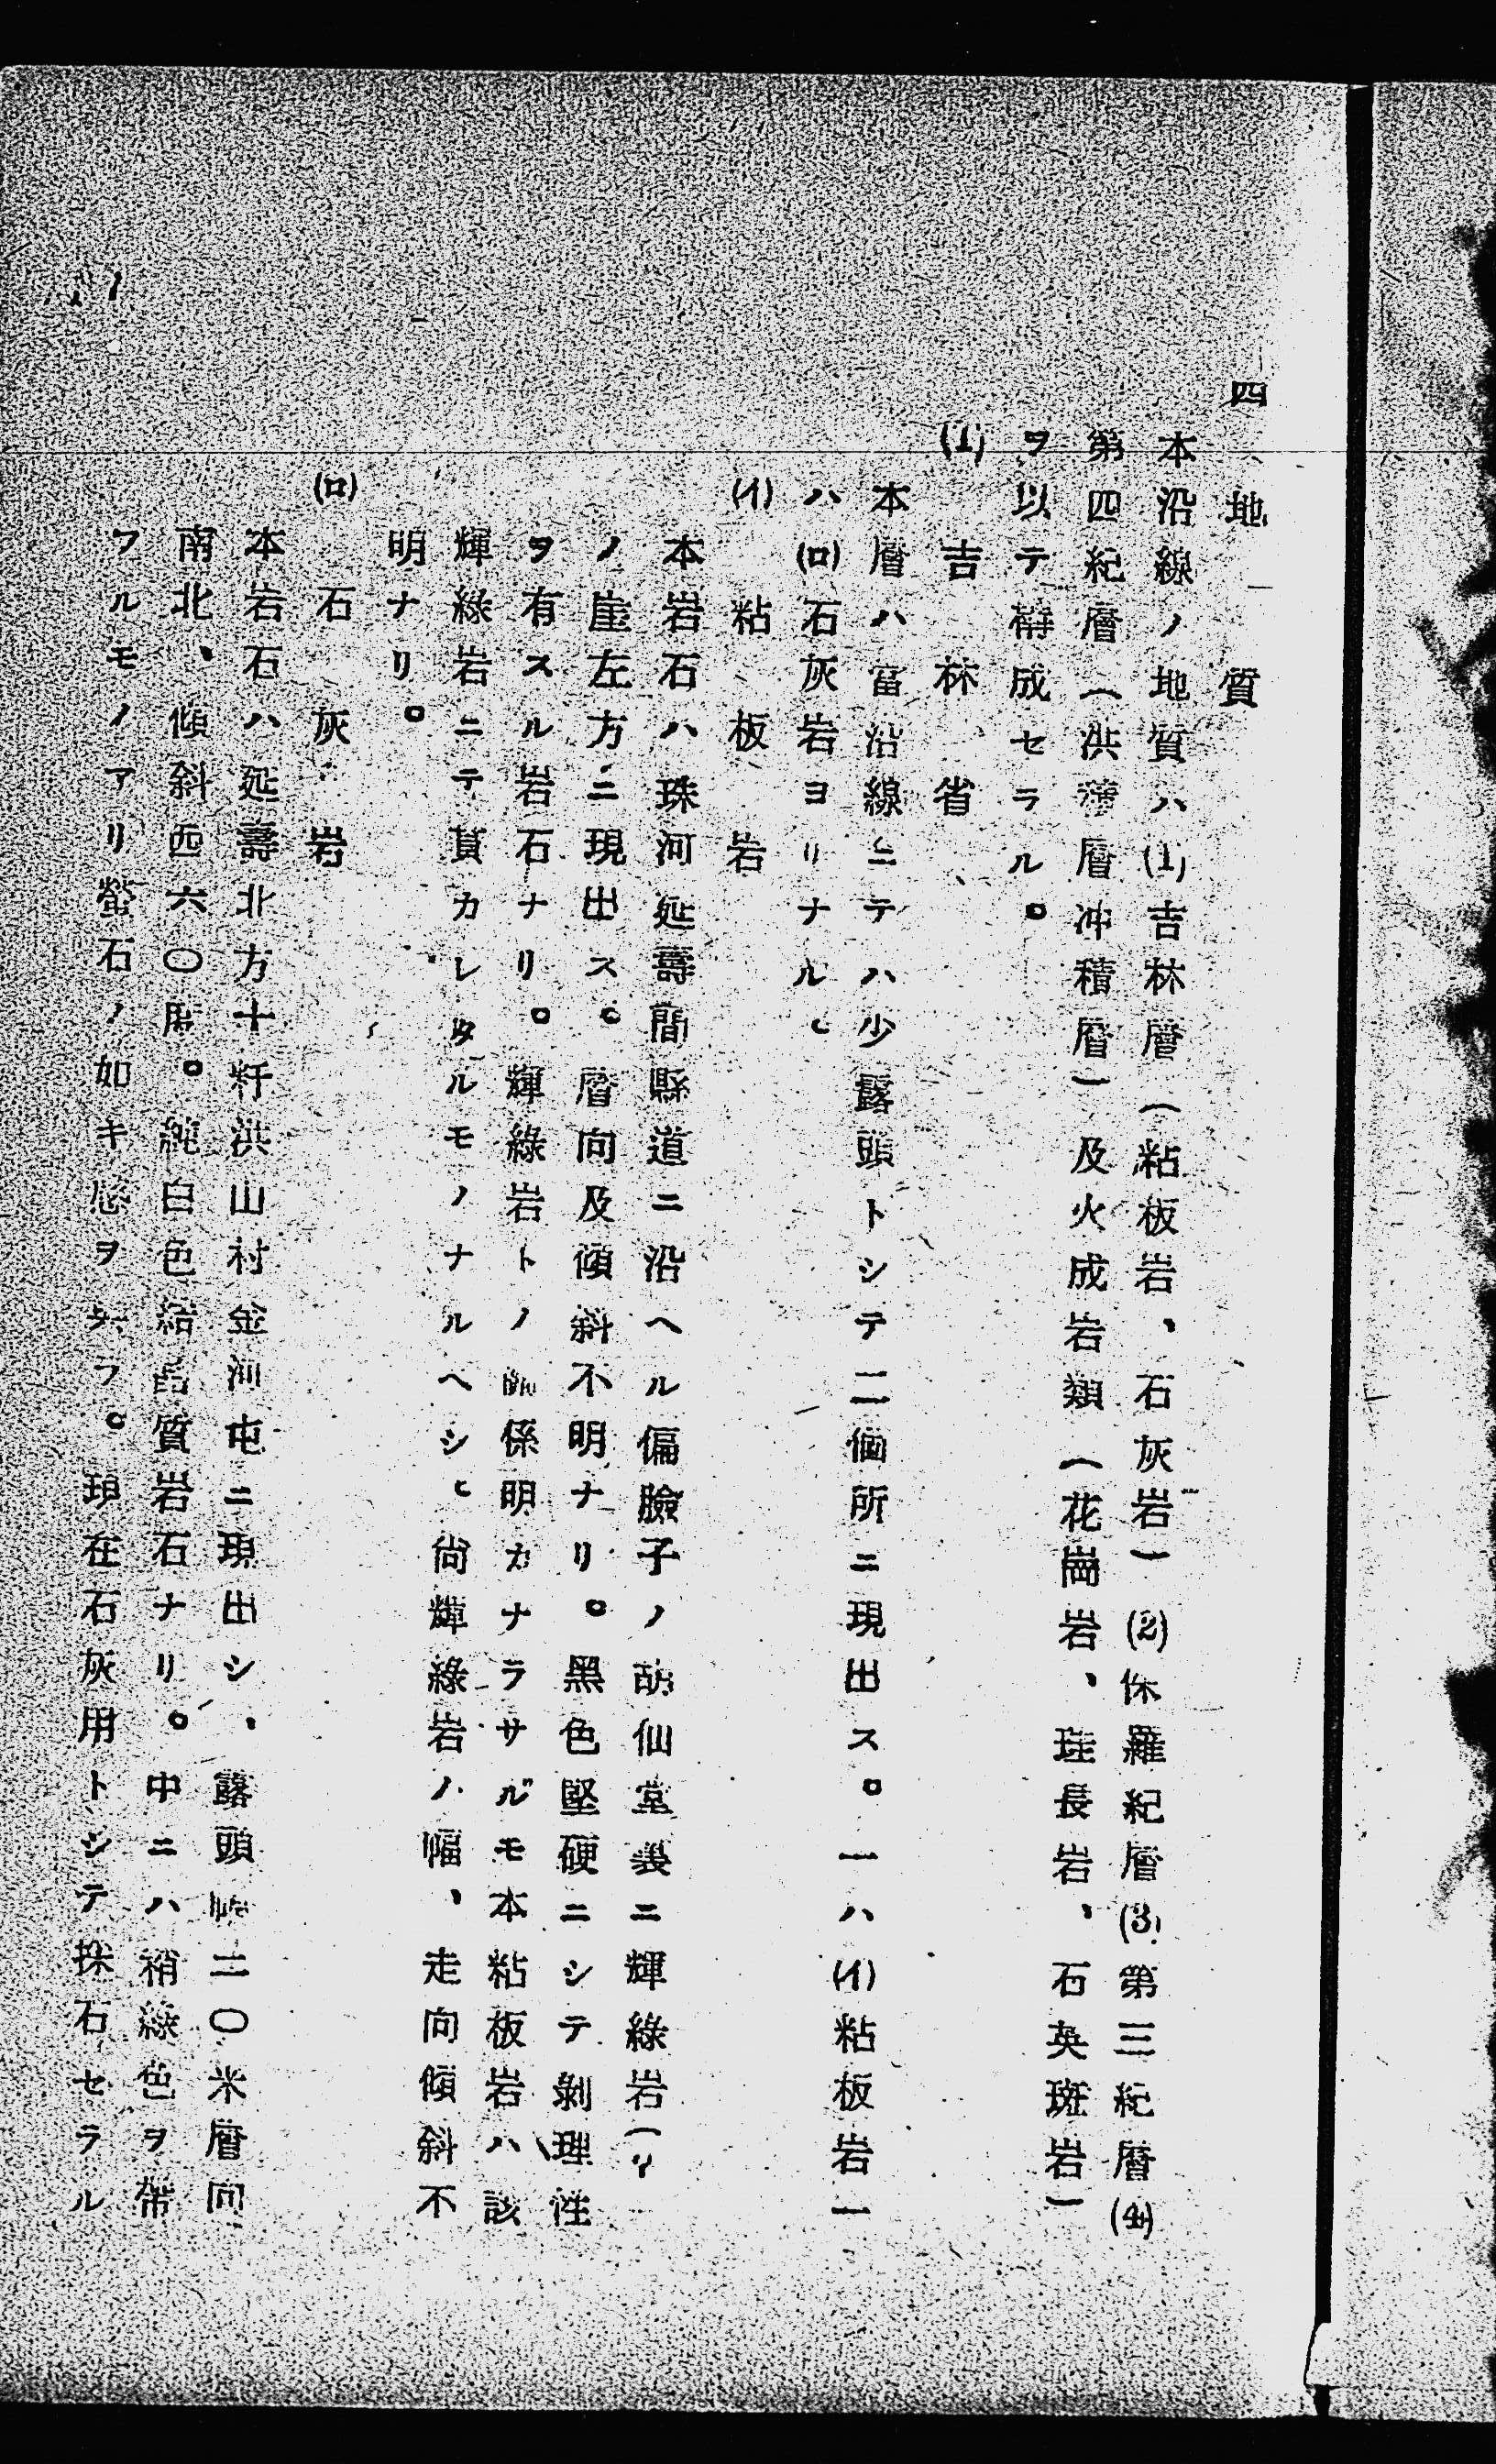 四　地　質
本沿線ノ地質ハ(1)吉林層（粘板岩、石灰岩）(2)侏羅紀層(3)第三紀層(4)
第四紀層（洪薄層冲積層）及火成岩類（花崗岩、珪長岩、石英斑岩）
ヲ以テ構成セラル。
(1)　吉　林　省
本層ハ富沿線ニテハ少露頭トシテ二個所ニ現出ス。一ハ(イ)粘板岩一
ハ(ロ)石灰岩ヨリナル。
(イ)　粘　板　岩
本岩石ハ珠河延壽間縣道ニ沿ヘル偏臉子ノ胡仙堂裏ニ輝綠岩(
ノ崖左方ニ現出ス。層向及傾斜不明ナリ。黑色堅硬ニシテ剝理性
ヲ有スル岩石ナリ。輝綠岩トノ關係明カナラサルモ本粘板岩ハ該
輝綠岩ニテ貫カレタルモノナルヘシ。尙輝綠岩ノ幅、走向傾斜不
明ナリ。
(ロ)　石　灰　岩
本岩石ハ延壽北方十粁洪山村金洲屯ニ現出シ、露頭幅二〇米層向
南北、傾斜西六〇度。純白色結晶質岩石ナリ。中ニハ稍綠色ヲ帶
フルモノアリ螢石ノ如キ感ヲ與フ。現在石灰用トシテ採石セラル